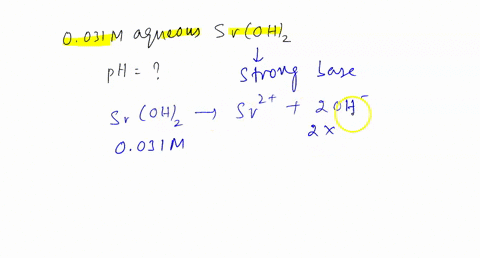 0.031 M aqueous Sr(OH)₂
↓
pH = ? Strong base
Sr(OH)₂ → Sr²⁺ + 2OH⁻
0.031 M 2x